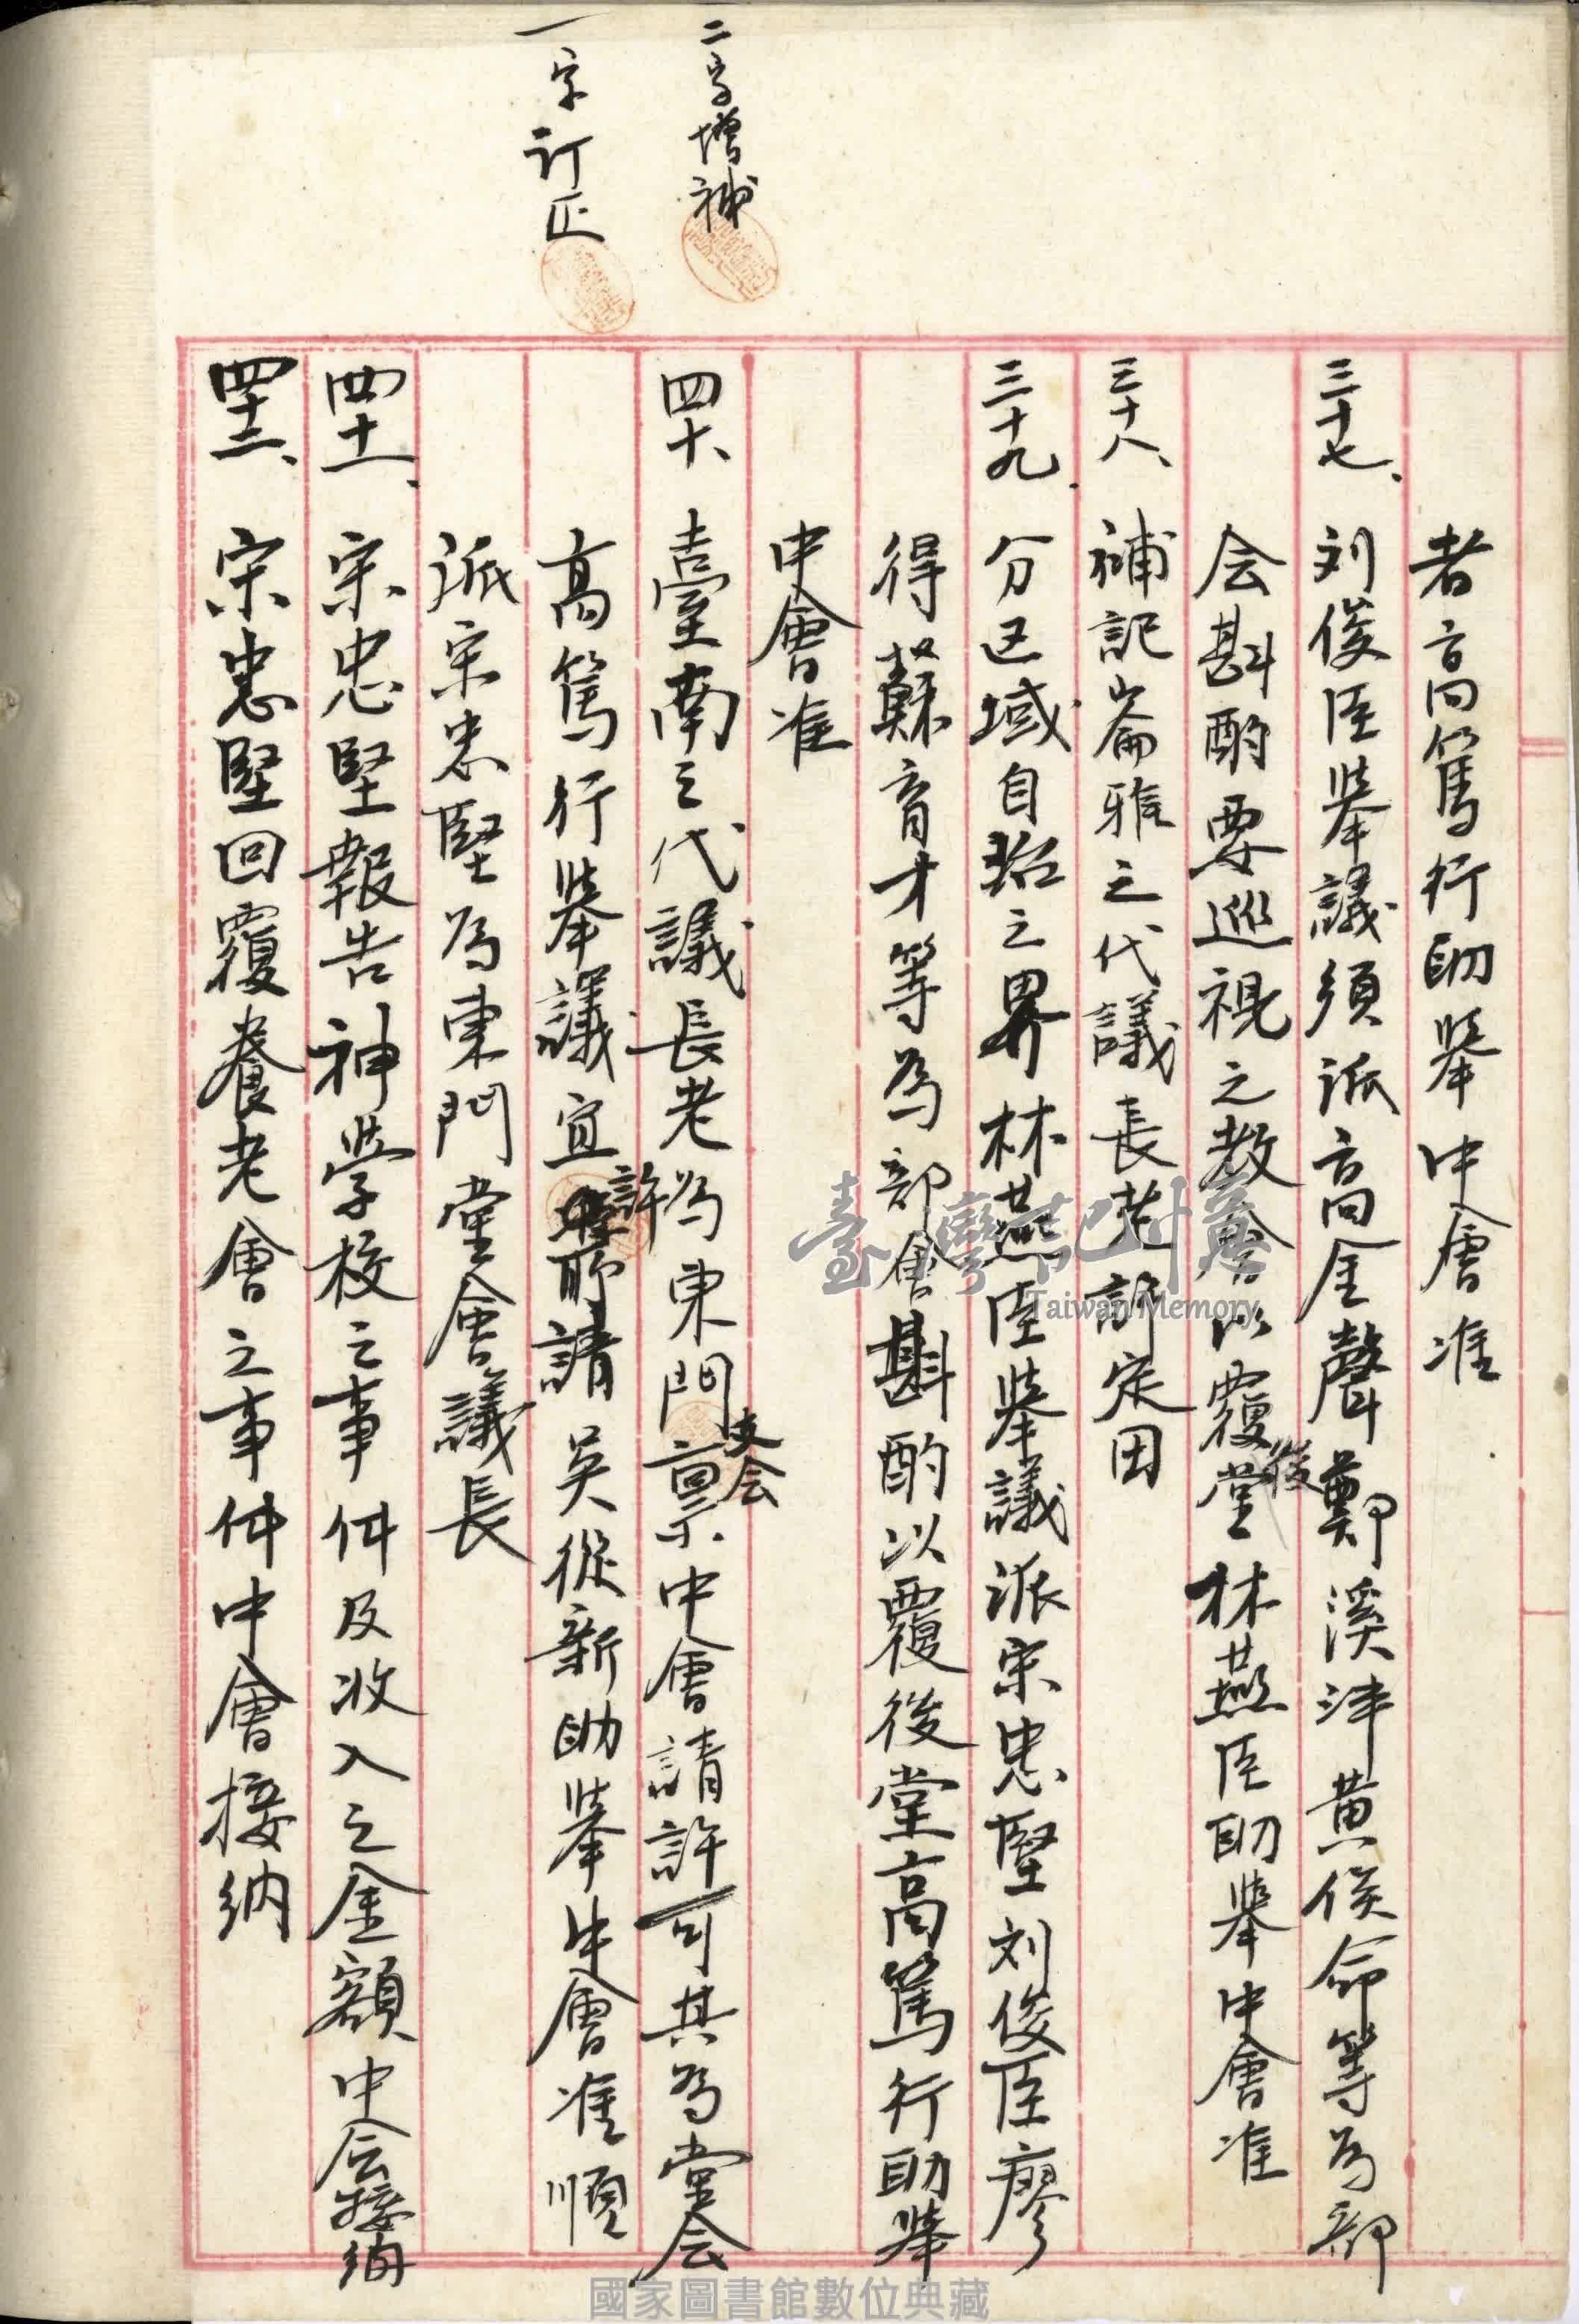 二字增補
一字訂正
者高篤行助举中會准
三十七、刘俊臣举議須派高金聲鄭溪津黄俟命等為部
会斟酌要巡視之教會以覆後堂林燕臣助举中會准
三十八、補記崙雅之代議長老許定田
三十九、分区域自招之界林燕臣举議派宋忠堅刘俊臣廖
得蘇育才等為部會斟酌以覆後堂高篤行助举
中會准
四十、臺南之代議長老為東門支会禀中會請許可其為堂会
高篤行举議宜許所請吳從新助举中會准順
派宋忠堅為東門堂會議長
四十一、宋忠堅報告神学校之事件及收入之金額中会接納
四十二、宋忠堅回覆養老會之事件中會接納
臺灣記憶
Taiwan Memory
國家圖書館數位典藏